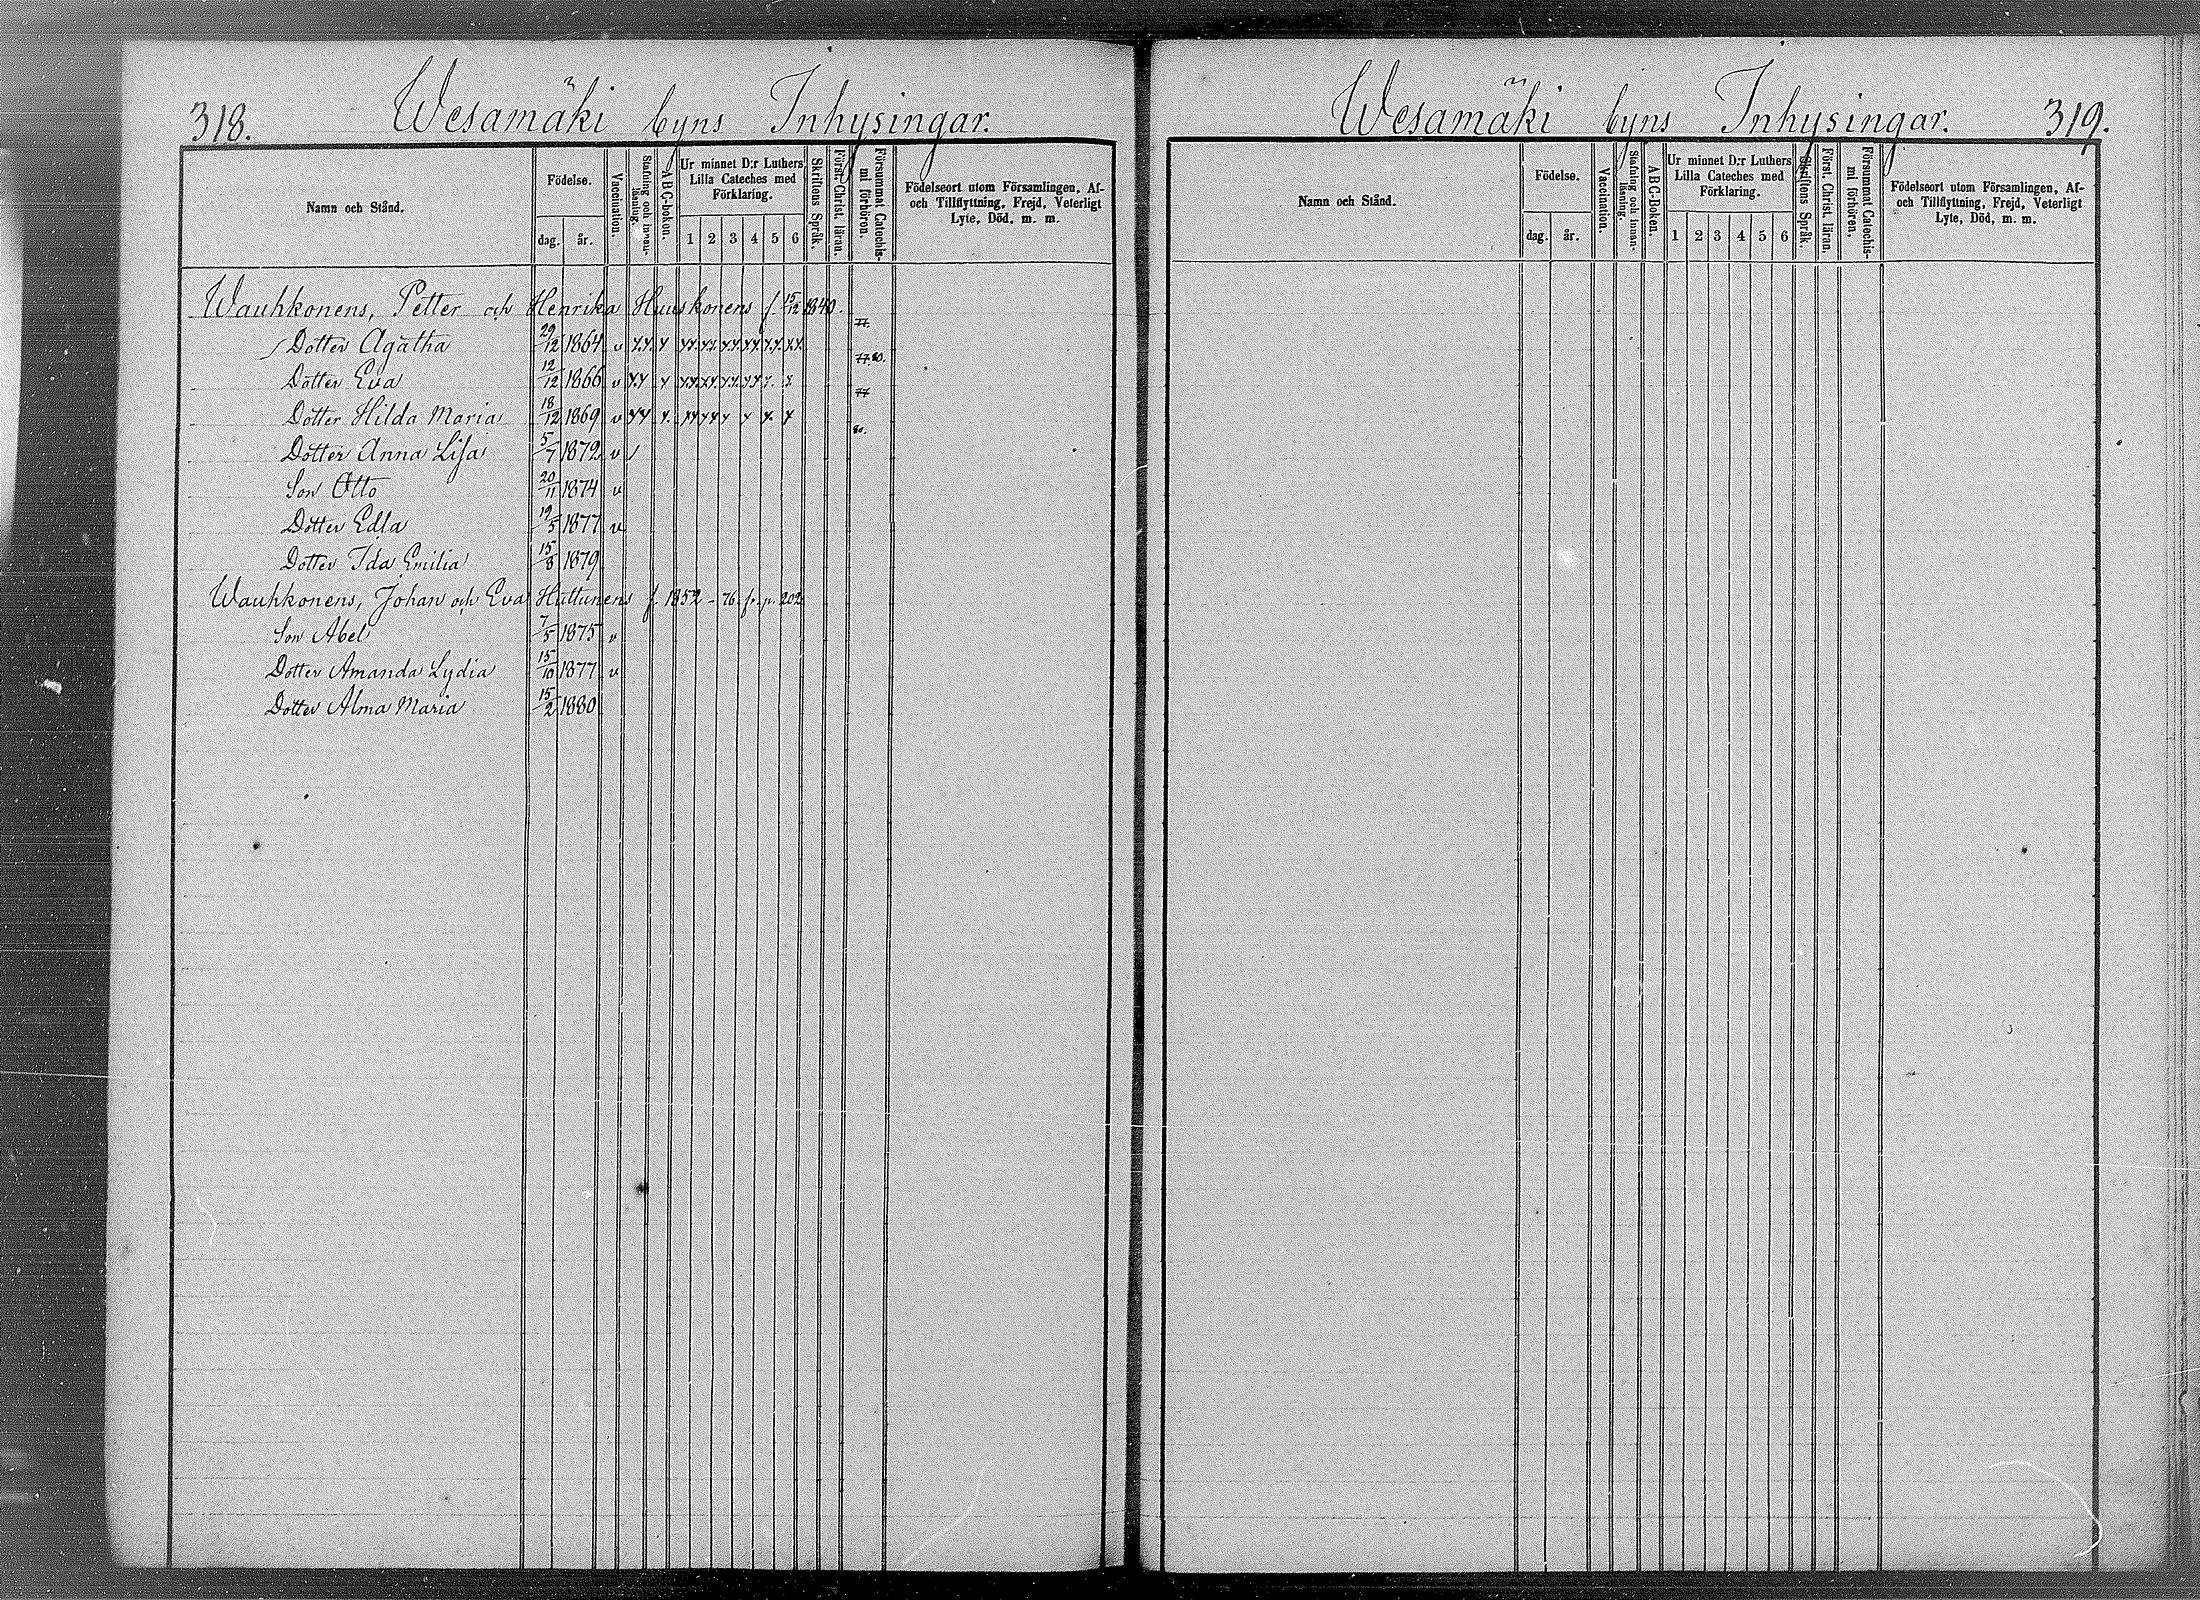 318.
Wesamäki byns Inhysingar.
Namn och Stånd.
Födelse.
dag.
år.
Vaccination.
Stafning och innanläsning.
A B C-boken.
Ur minnet D:r Luthers
Lilla Cateches med
Förklaring.
1 2 3 4 5 6
Skriftens Språk.
Först. Christ. läran.
Försummat Catechismi förhören.
Födelseort utom Församlingen, Af-
och Tillflyttning, Frejd, Veterligt
Lyte, Död, m. m.
Wauhkonens, Petter och Henrika Huuskonens f. 15/12 1840.
77.
Dotter Agatha 29/12 1864 v
77. 80.
Dotter Eva 12/12 1866 v
77
Dotter Hilda Maria 18/12 1869 v
80.
Dotter Anna Lisa 5/7 1872 v
Son Otto 20/11 1874 v
Dotter Edla 19/5 1877 v
Dotter Ida Emilia 15/8 1879
Wauhkonens, Johan och Eva Huttunens f. 1852 - 76 fr. p. 202
Son Abel 7/5 1875 v
Dotter Amanda Lydia 15/10 1877 v
Dotter Alma Maria 15/2 1880
Wesamäki byns Inhysingar.
319.
Namn och Stånd.
Födelse.
dag.
år.
Vaccination.
Stafning och innanläsning.
A B C-boken.
Ur minnet D:r Luthers
Lilla Cateches med
Förklaring.
1 2 3 4 5 6
Skriftens Språk.
Först. Christ. läran.
Försummat Catechismi förhören.
Födelseort utom Församlingen, Af-
och Tillflyttning, Frejd, Veterligt
Lyte, Död, m. m.